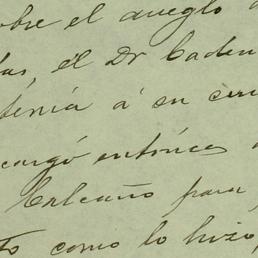 sobre el arreglo d
das, él Dr Caden
tenía á su cui
cargó entónces
Enleaño para
to como lo hizo,